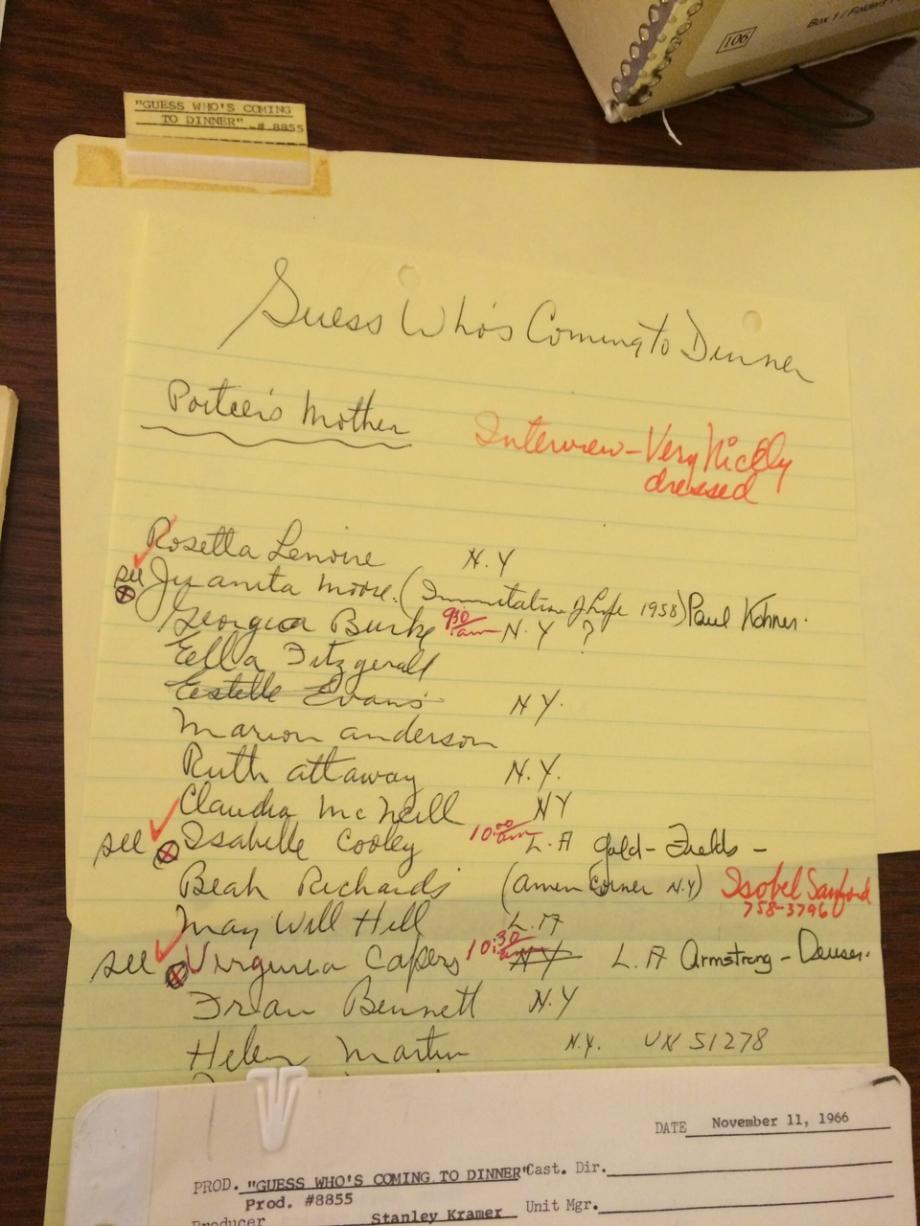 106
Box 1 / Folders
"GUESS WHO'S COMING
TO DINNER" - # 8855
Guess Who's Coming to Dinner
Poitier's Mother
Interview - Very Nicely
dressed
Rosetta Lenoire N.Y
see Juanita Moore. (Immitation of Life 1958) Paul Kohner.
Georgia Burke 9:30 am N.Y ?
Ella Fitzgerald
Estelle Evans N.Y.
Marion anderson
Ruth attaway N.Y.
Claudia McNeill NY
see Isabelle Cooley 10:00 am L.A Gold-Fields -
Beah Richards (Amen Corner N.Y) Isobel Sanford
758-3796
May Will Hill L.A
see Virginia Capers 10:30 am NY L.A Armstrong - Deuser.
Fran Bennett N.Y
Helen Martin N.Y. UN 51278
DATE November 11, 1966
PROD. "GUESS WHO'S COMING TO DINNER" Cast. Dir.
Prod. #8855 Unit Mgr.
Producer Stanley Kramer